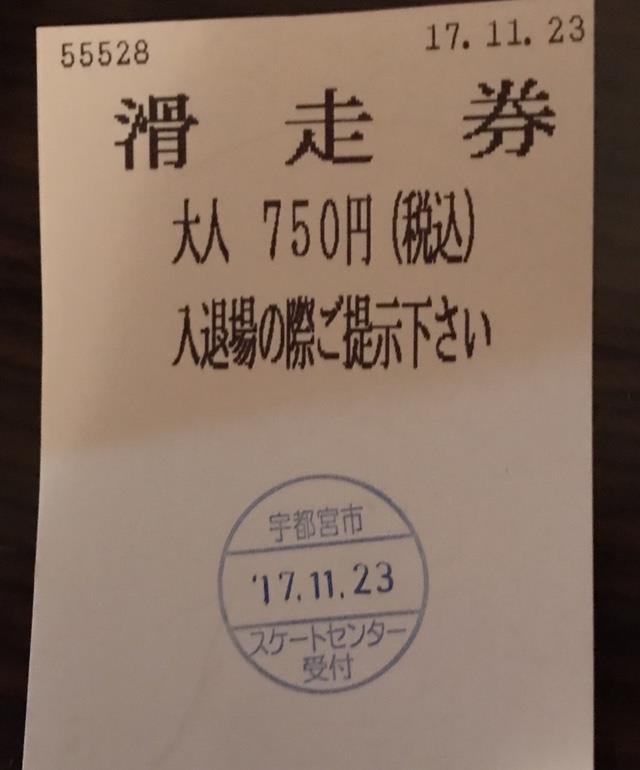 55528 17.11.23
滑走券
大人 750円(税込)
入退場の際ご提示下さい
宇都宮市
'17.11.23
スケートセンター
受付